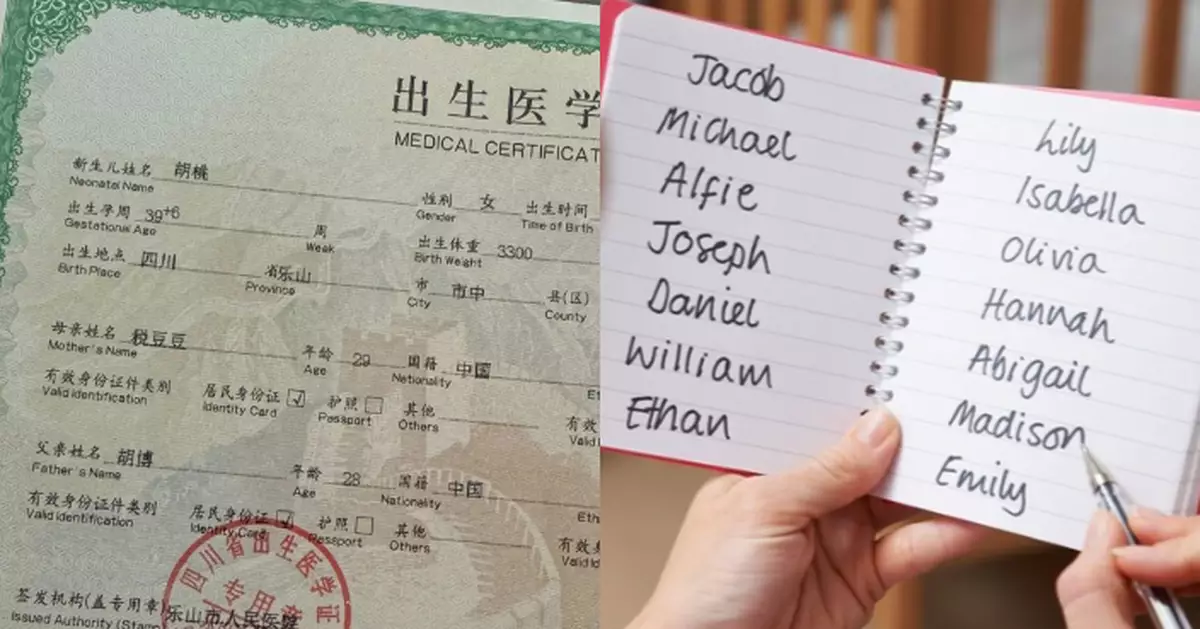 出生医学
MEDICAL CERTIFICAT
新生儿姓名 胡桃 性别 女 出生时间
Neonatal Name Gender Time of Birth
出生孕周 39+6 周 出生体重 3300
Gestational Age Weak Birth Weight
出生地点 四川 省乐山 市 市中 县(区)
Birth Place Province City County
母亲姓名 税豆豆 年龄 29 国籍 中国
Mother's Name Age Nationality Et
有效身份证件类别 居民身份证 ☑ 护照 ☐ 其他 有效
Valid Identification Identity Card Passport Others Valid I
父亲姓名 胡博 年龄 28 国籍 中国
Father's Name Age Nationality Eth
有效身份证件类别 居民身份证 ☑ 护照 ☐ 其他 有效
Valid Identification Identity Card Passport Others Valid Id
四川省出生医学证
专用章
签发机构(盖专用章) 乐山市人民医院
Issued Authority (Stamp
Jacob
Michael
Alfie
Joseph
Daniel
William
Ethan
Lily
Isabella
Olivia
Hannah
Abigail
Madison
Emily